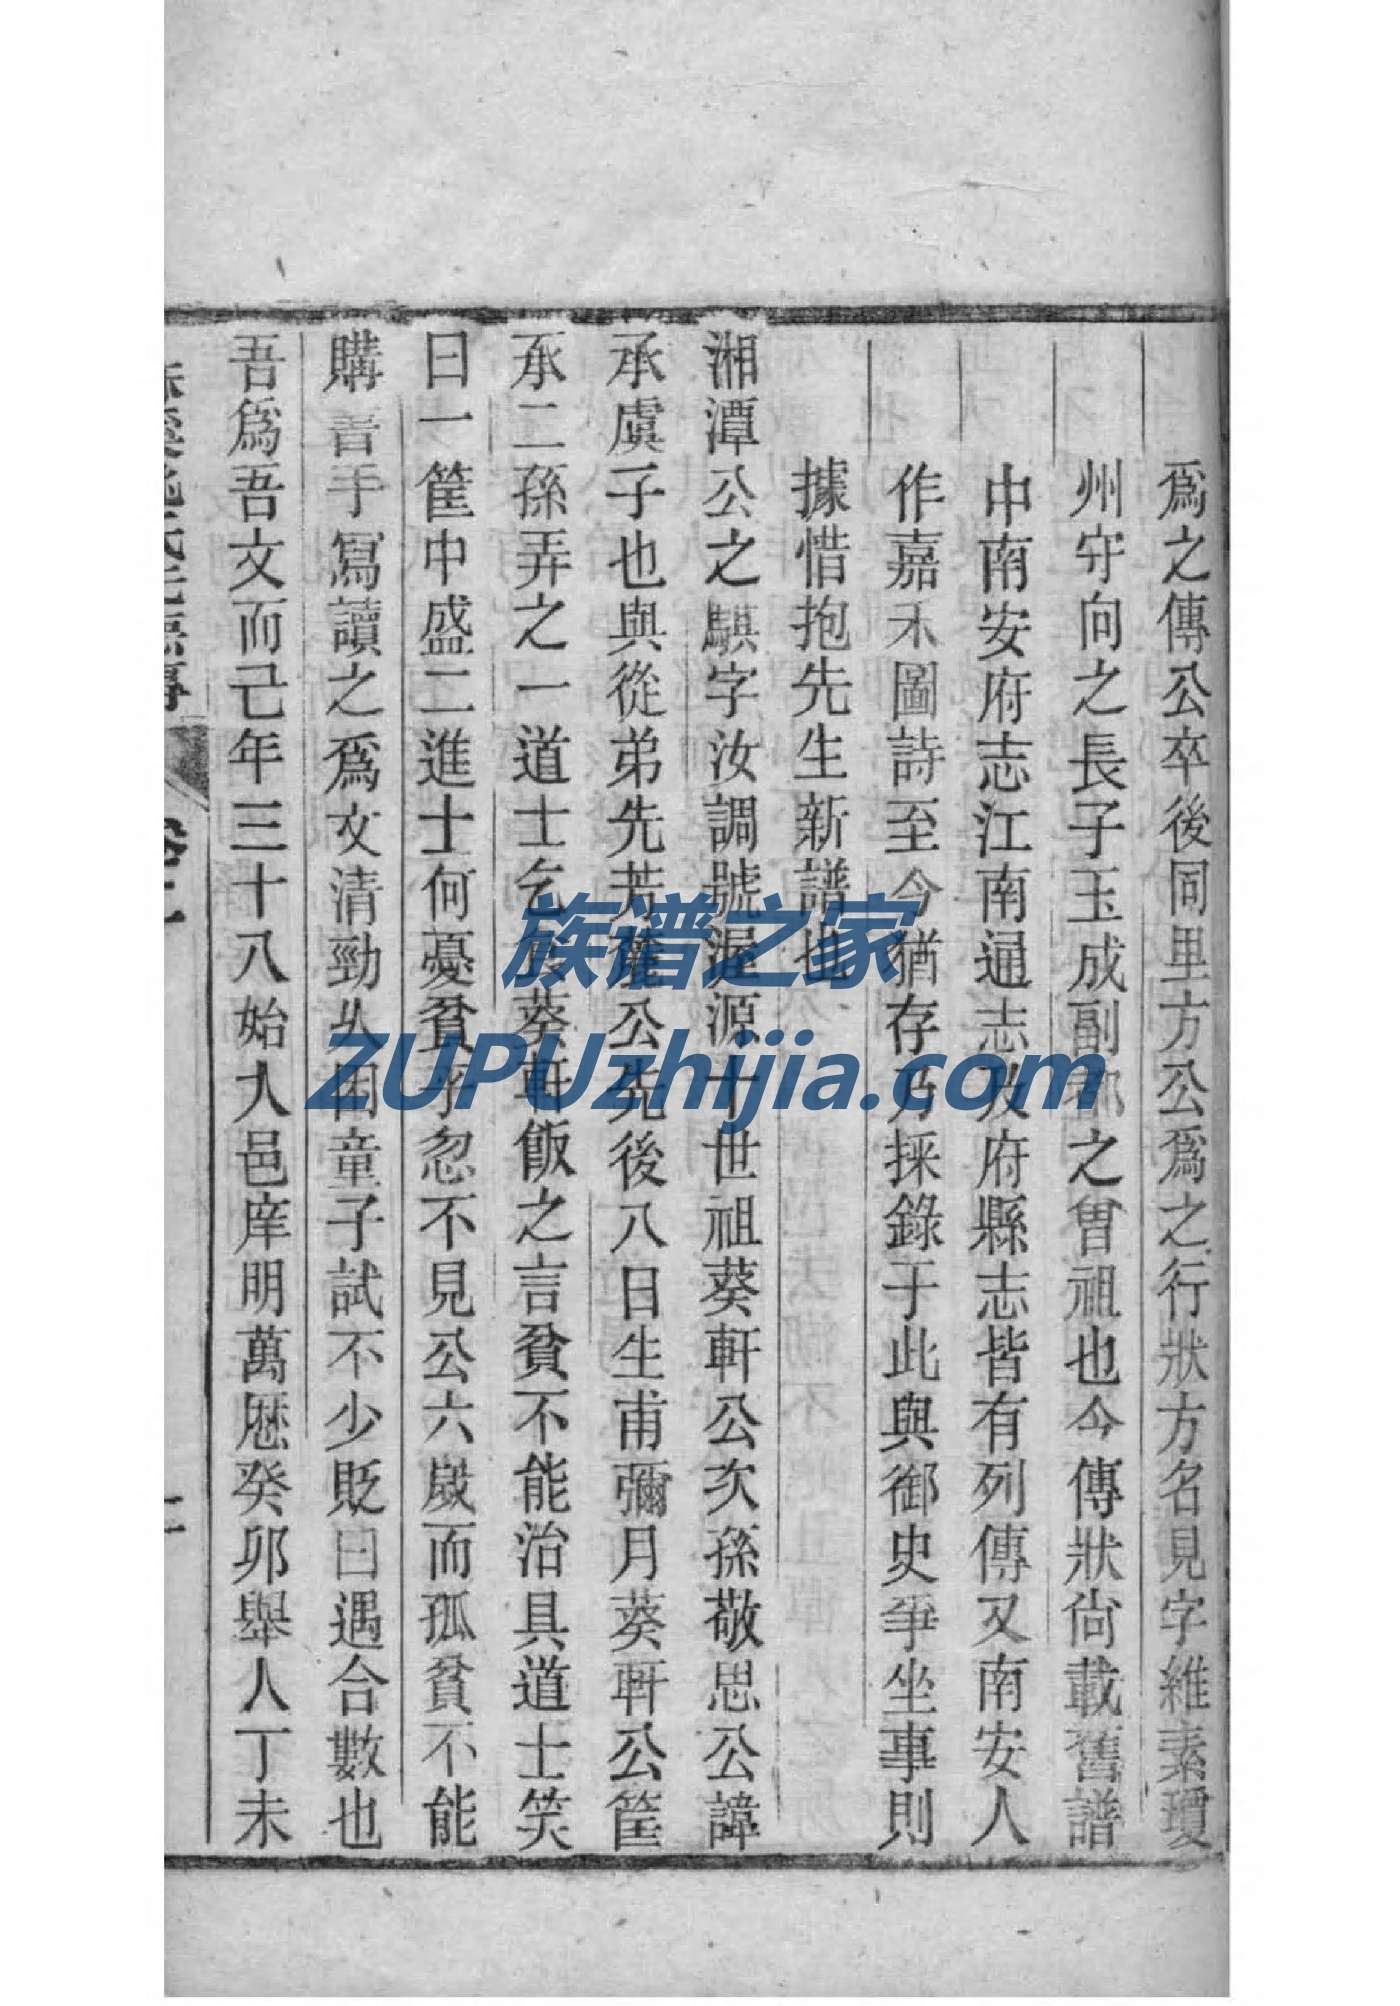 爲之傳公卒後同里方公爲之行狀方名見字維素瓊
州守向之長子玉成副郎之曾祖也今傳狀尙載舊譜
中南安府志江南通志攷府縣志皆有列傳又南安人
作嘉禾圖詩至今猶存乃採錄于此與御史爭坐事則
據惜抱先生新譜也
湘潭公之騏字汝調號渥源十世祖葵軒公次孫敬思公諱
承虞子也與從弟先芳麓公先後八日生甫彌月葵軒公筐
承二孫弄之一道士乞食葵軒飯之言貧不能治具道士笑
曰一筐中盛二進士何憂貧乎忽不見公六歲而孤貧不能
購書手寫讀之爲文清勁久困童子試不少貶曰遇合數也
吾爲吾文而已年三十八始入邑庠明萬歷癸卯舉人丁未
氏先德傳
卷二
族谱之家
ZUPUzhijia.com